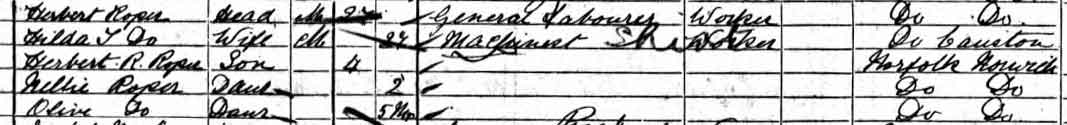 Herbert Roper Head M 27 General Labourer Worker Do Do.
Hilda T Do Wife M 27 Machinist Worker Do Cawston
Herbert R. Roper Son 4 Norfolk Norwich
Nellie Roper Daur 2 Do Do
Olive Do Daur 5 Mos Do Do